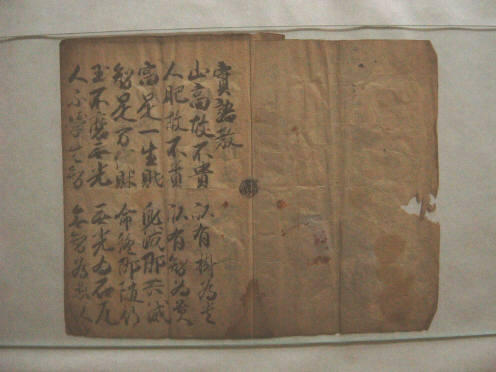 實語教
山高故不貴 以有樹為貴
人肥故不貴 以有智為貴
富是一生財 身滅即共滅
智是万代財 命終即随行
玉不磨無光 無光為石瓦
人不學無智 無智為愚人